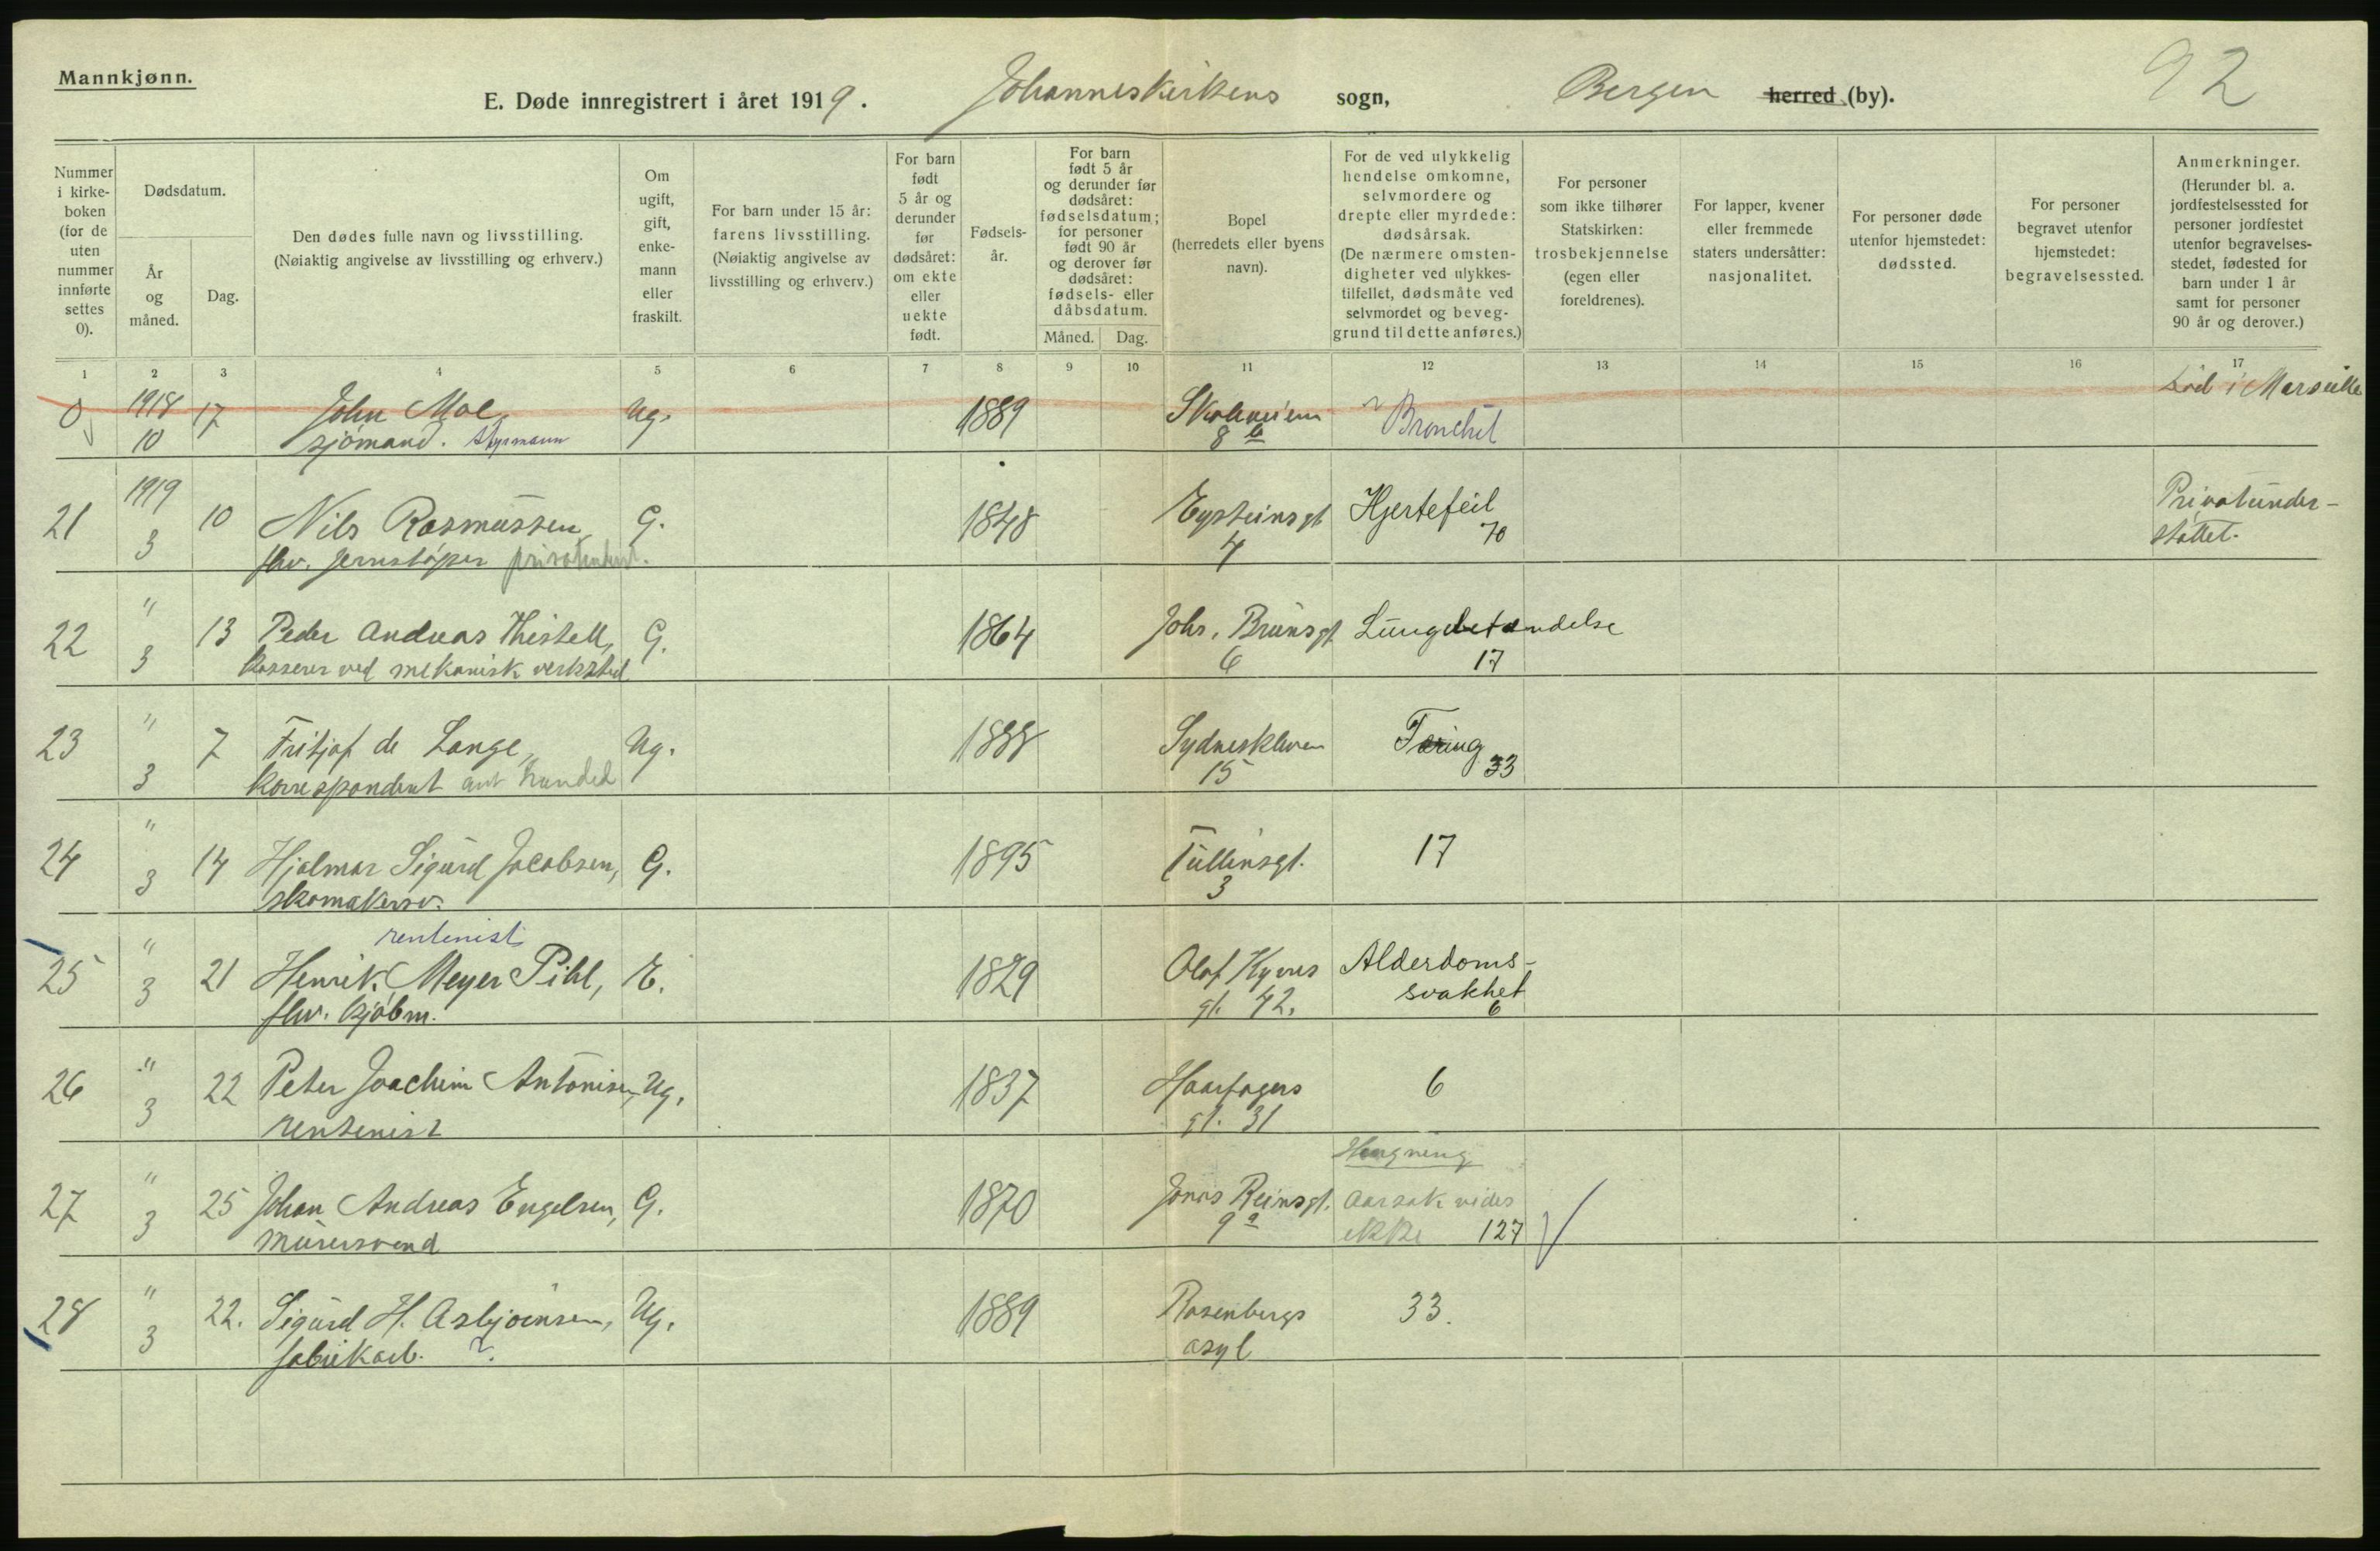 Mannkjønn.
E. Døde innregistrert i året 1919. Johanneskirkens sogn, Bergen herred (by).
92
Nummer i kirke-boken (for de uten nummer innførte settes 0).
Dødsdatum.
År og måned.
Dag.
Den dødes fulle navn og livsstilling. (Nøiaktig angivelse av livsstilling og erhverv.)
Om ugift, gift, enke-mann eller fraskilt.
For barn under 15 år: farens livsstilling. (Nøiaktig angivelse av livsstilling og erhverv.)
For barn født 5 år og derunder før dødsåret: om ekte eller uekte født.
Fødsels-år.
For barn født 5 år og derunder før dødsåret: fødselsdatum; for personer født 90 år og derover før dødsåret: fødsels- eller dåbsdatum.
Måned. Dag.
Bopel (herredets eller byens navn).
For de ved ulykkelig hendelse omkomne, selvmordere og drepte eller myrdede: dødsårsak. (De nærmere omsten-digheter ved ulykkes-tilfellet, dødsmåte ved selvmordet og beveg-grund til dette anføres.)
For personer som ikke tilhører Statskirken: trosbekjennelse (egen eller foreldrenes).
For lapper, kvener eller fremmede staters undersåtter: nasjonalitet.
For personer døde utenfor hjemstedet: dødssted.
For personer begravet utenfor hjemstedet: begravelsessted.
Anmerkninger. (Herunder bl. a. jordfestelsessted for personer jordfestet utenfor begravelses-stedet, fødested for barn under 1 år samt for personer 90 år og derover.)
1 2 3 4 5 6 7 8 9 10 11 12 13 14 15 16 17
0 1918 17 John Moe, Ug. 1889 Skoleveien Bronchit Død i Marseille
10 sjømand. Styrmann 8 b
21 1919 10 Nils Rasmussen G. 1848 Eysteinsgt Hjertefeil Privatunder-
3 fhv. jernstøper privatunderst. 4 70 støttet.
22 " 13 Peder Andreas Thistell, G. 1864 Johs. Brunsgt Lungebetændelse
3 kasserer ved mekanisk verksted 6 17
23 " 7 Fritjof de Lange, Ug. 1888 Sydneskleven Tæring
3 korrespondent ant handel 15 33
24 " 14 Hjalmar Sigurd Jacobsen, G. 1895 Tullinsgt. 17
3 skomakersv. 3
rentenist
25 " 21 Henrik Meyer Pihl, E. 1829 Olaf Kyrres Alderdoms-
3 fhv. kjøbm. gt. 42. svakhet 6
26 " 22 Peter Joachim Antonisen, Ug. 1837 Haarfagers 6
3 rentenist gt. 31
Hengning
27 " 25 Johan Andreas Engelsen, G. 1870 Jonas Reinsgt. Aarsak vides
3 murersvend 9 a ikke 127
28 " 22. Sigurd H. Asbjørnsen, Ug. 1889 Rosenbergs 33.
3 fabrikarb. ?. asyl